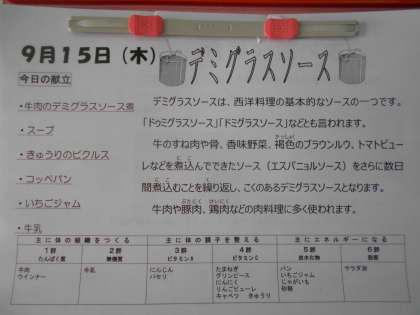 9月15日(木)
デミグラスソース
今日の献立
・牛肉のデミグラスソース煮
・スープ
・きゅうりのピクルス
・コッペパン
・いちごジャム
・牛乳
デミグラスソースは、西洋料理の基本的なソースの一つです。
「ドゥミグラスソース」「ドミグラスソース」などとも言われます。
牛のすね肉や骨、香味野菜、褐色のブラウンルウ、トマトピュー
レなどを煮込んでできたソース(エスパニョルソース)をさらに数日
間煮込むことを繰り返し、こくのあるデミグラスソースとなります。
牛肉や豚肉、鶏肉などの肉料理に多く使われます。
主に体の組織をつくる 主に体の調子を整える 主にエネルギーになる
1群 2群 3群 4群 5群 6群
たんぱく質 無機質 ビタミンA ビタミンC 炭水化物 脂肪
牛肉 牛乳 にんじん たまねぎ パン サラダ油
ウインナー パセリ グリンピース いちごジャム
にんにく じゃがいも
りんごピューレ 砂糖
キャベツ きゅうり